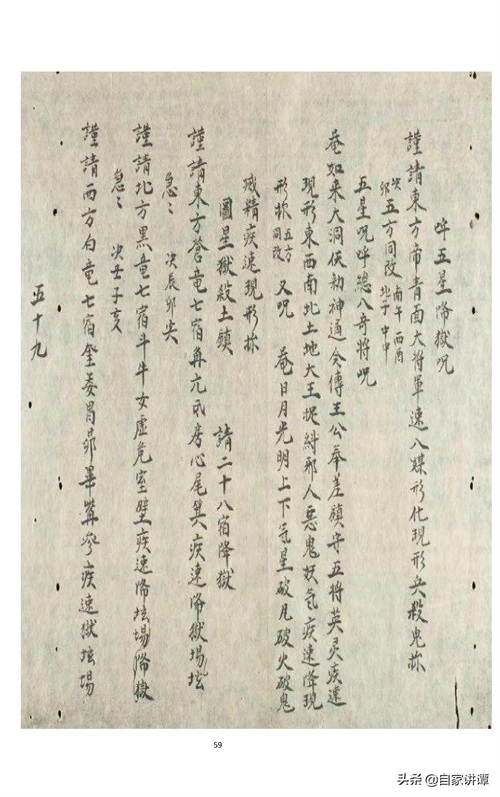 吽五星降獄咒
謹請東方帝青面大将軍速八煤形化現形兵殺鬼捺
決卯 五方同改 南午 酉酉 北子 中中
五星咒吽總八奇将咒
菴如来大洞伏劫神通令傳王公奉差鎮守五将英灵疾速
現形東西南北土地大王捉縛邪人惡鬼妖氣疾速降現
形捺 五方同改 又咒 菴日月光明上下氣星破凡破火破鬼
滅精疾速現形捺
國星獄殺土鎮 請二十八宿降獄
謹請東方蒼竜七宿角亢氐房心尾箕疾速降獄場坛
急〻 决辰卯寅
謹請北方黑竜七宿斗牛女虛危室壁疾速降坛場降獄
急〻 决壬子亥
謹請西方白竜七宿奎婁胃昴畢觜參疾速獄坛場
五十九
59
头条@自家讲谭